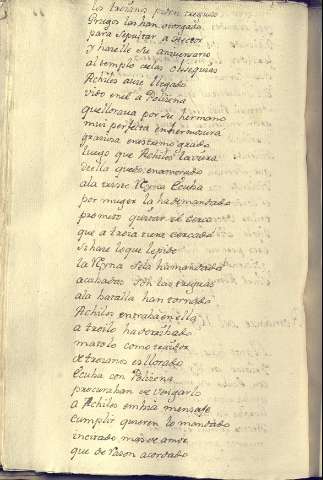 los troianos piden treguas
Griegos las han otorgado
para sepultar a Hector
y hazelle su aniversario
al templo de las obsequias
Achiles auie llegado
vido en el a Polizena
que lloraua por su hermano
mui perfecta en hermosura
graciosa en estremo grado
luego que Achiles la viera
della quedo enamorado
a la triste Reyna Ecuba
por muger la ha demandado
prometio quitar el cerco
que a troia tiene cercado
si haze lo que le pide
la Reyna se la ha mandado
acabadas son las treguas
a la batalla han tornado
Achiles entraba en ella
a troilo ha derribado
matolo como traidor
de troianos es llorado
Ecuba con Polizena
procuraban de vengarlo
a Achiles embia mensaje
cumplir quieren lo mandado
mas de amor
que de razon acordado